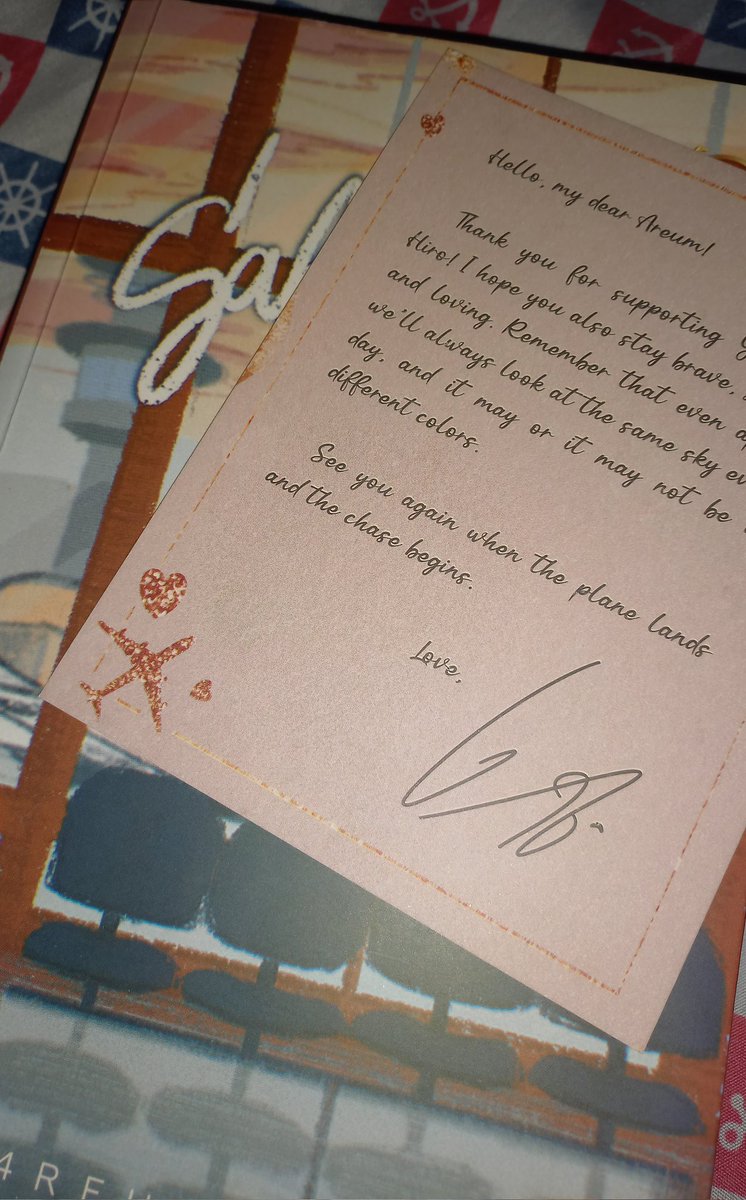 Sal
Hello, my dear Areum!
Thank you for supporting
Hiro! I hope you also stay brave,
and loving. Remember that even
we'll always look at the same sky
day, and it may or it may not be
different colors.
See you again when the plane lands
and the chase begins.
Love,
4REU